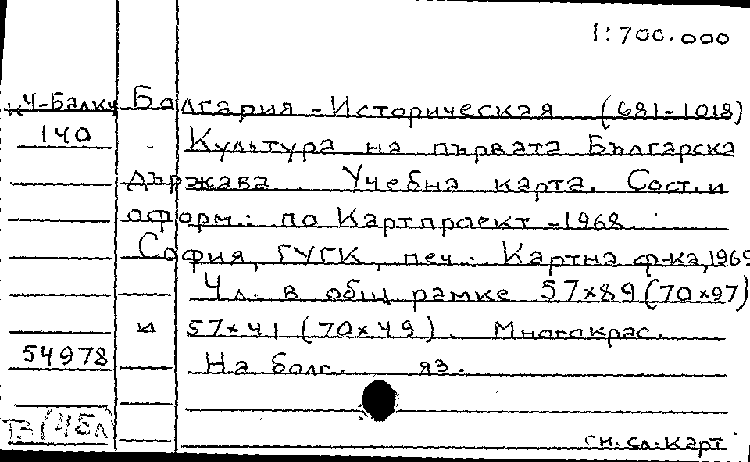 1:700.000
Ч-Балк Болгария - Историческая (681-1018)
140 Культура на първата Българска
държава. Учебна карта. Сост. и
оформ.: по Картпроект - 1968
София, ГУГК, печ.: Картна ф-ка, 1969
4 л. в общ рамке 57×89 (70×97)
и 57×41 (70×49). Многокрас.
54978 На болг. яз.
см. сл. карт